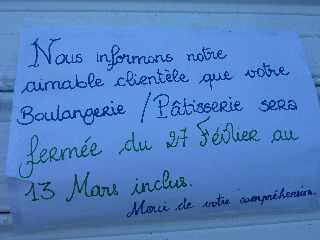 Nous informons notre
aimable clientèle que votre
Boulangerie / Pâtisserie sera
fermée du 27 Février au
13 Mars inclus.
Merci de votre compréhension.